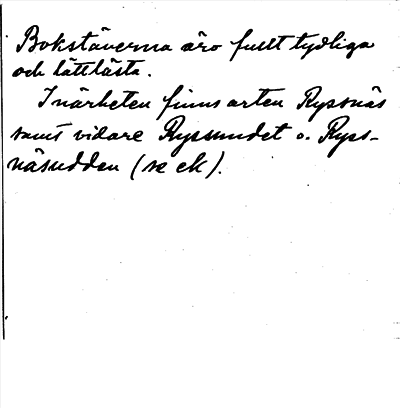 Bokstäverna äro fullt tydliga
och lättlästa.
I närheten finns arten Ryssnäs
samt vidare Ryssundet o. Ryss-
näsudden (se ek).